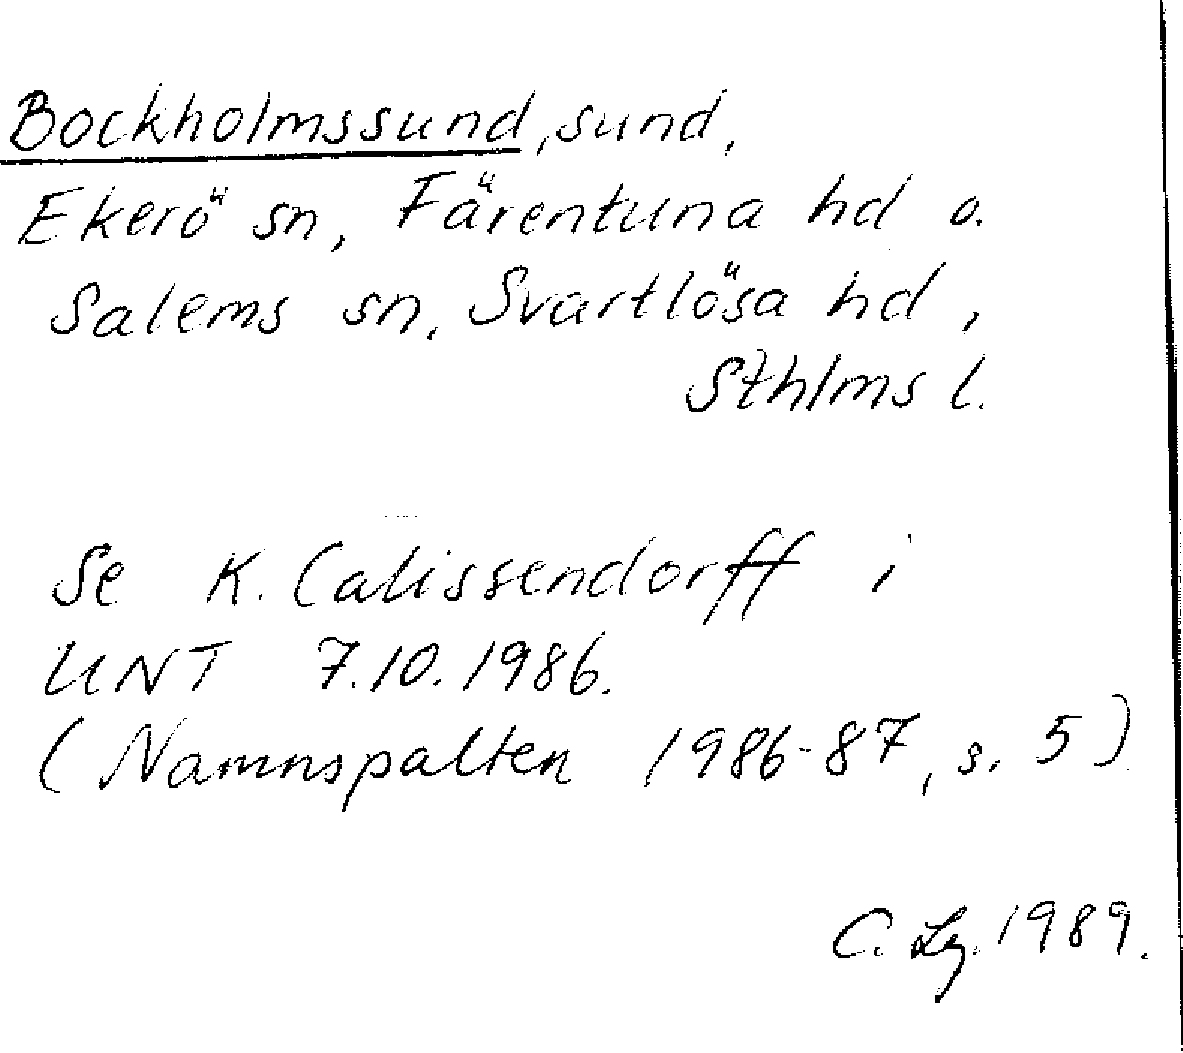 Bockholmssund, sund,
Ekerö sn, Färentuna hd o.
Salems sn, Svartlösa hd,
Sthlms l.
Se K. Calissendorff i
UNT 7.10.1986.
(Namnspalten 1986-87, s. 5)
C. Lg. 1989.